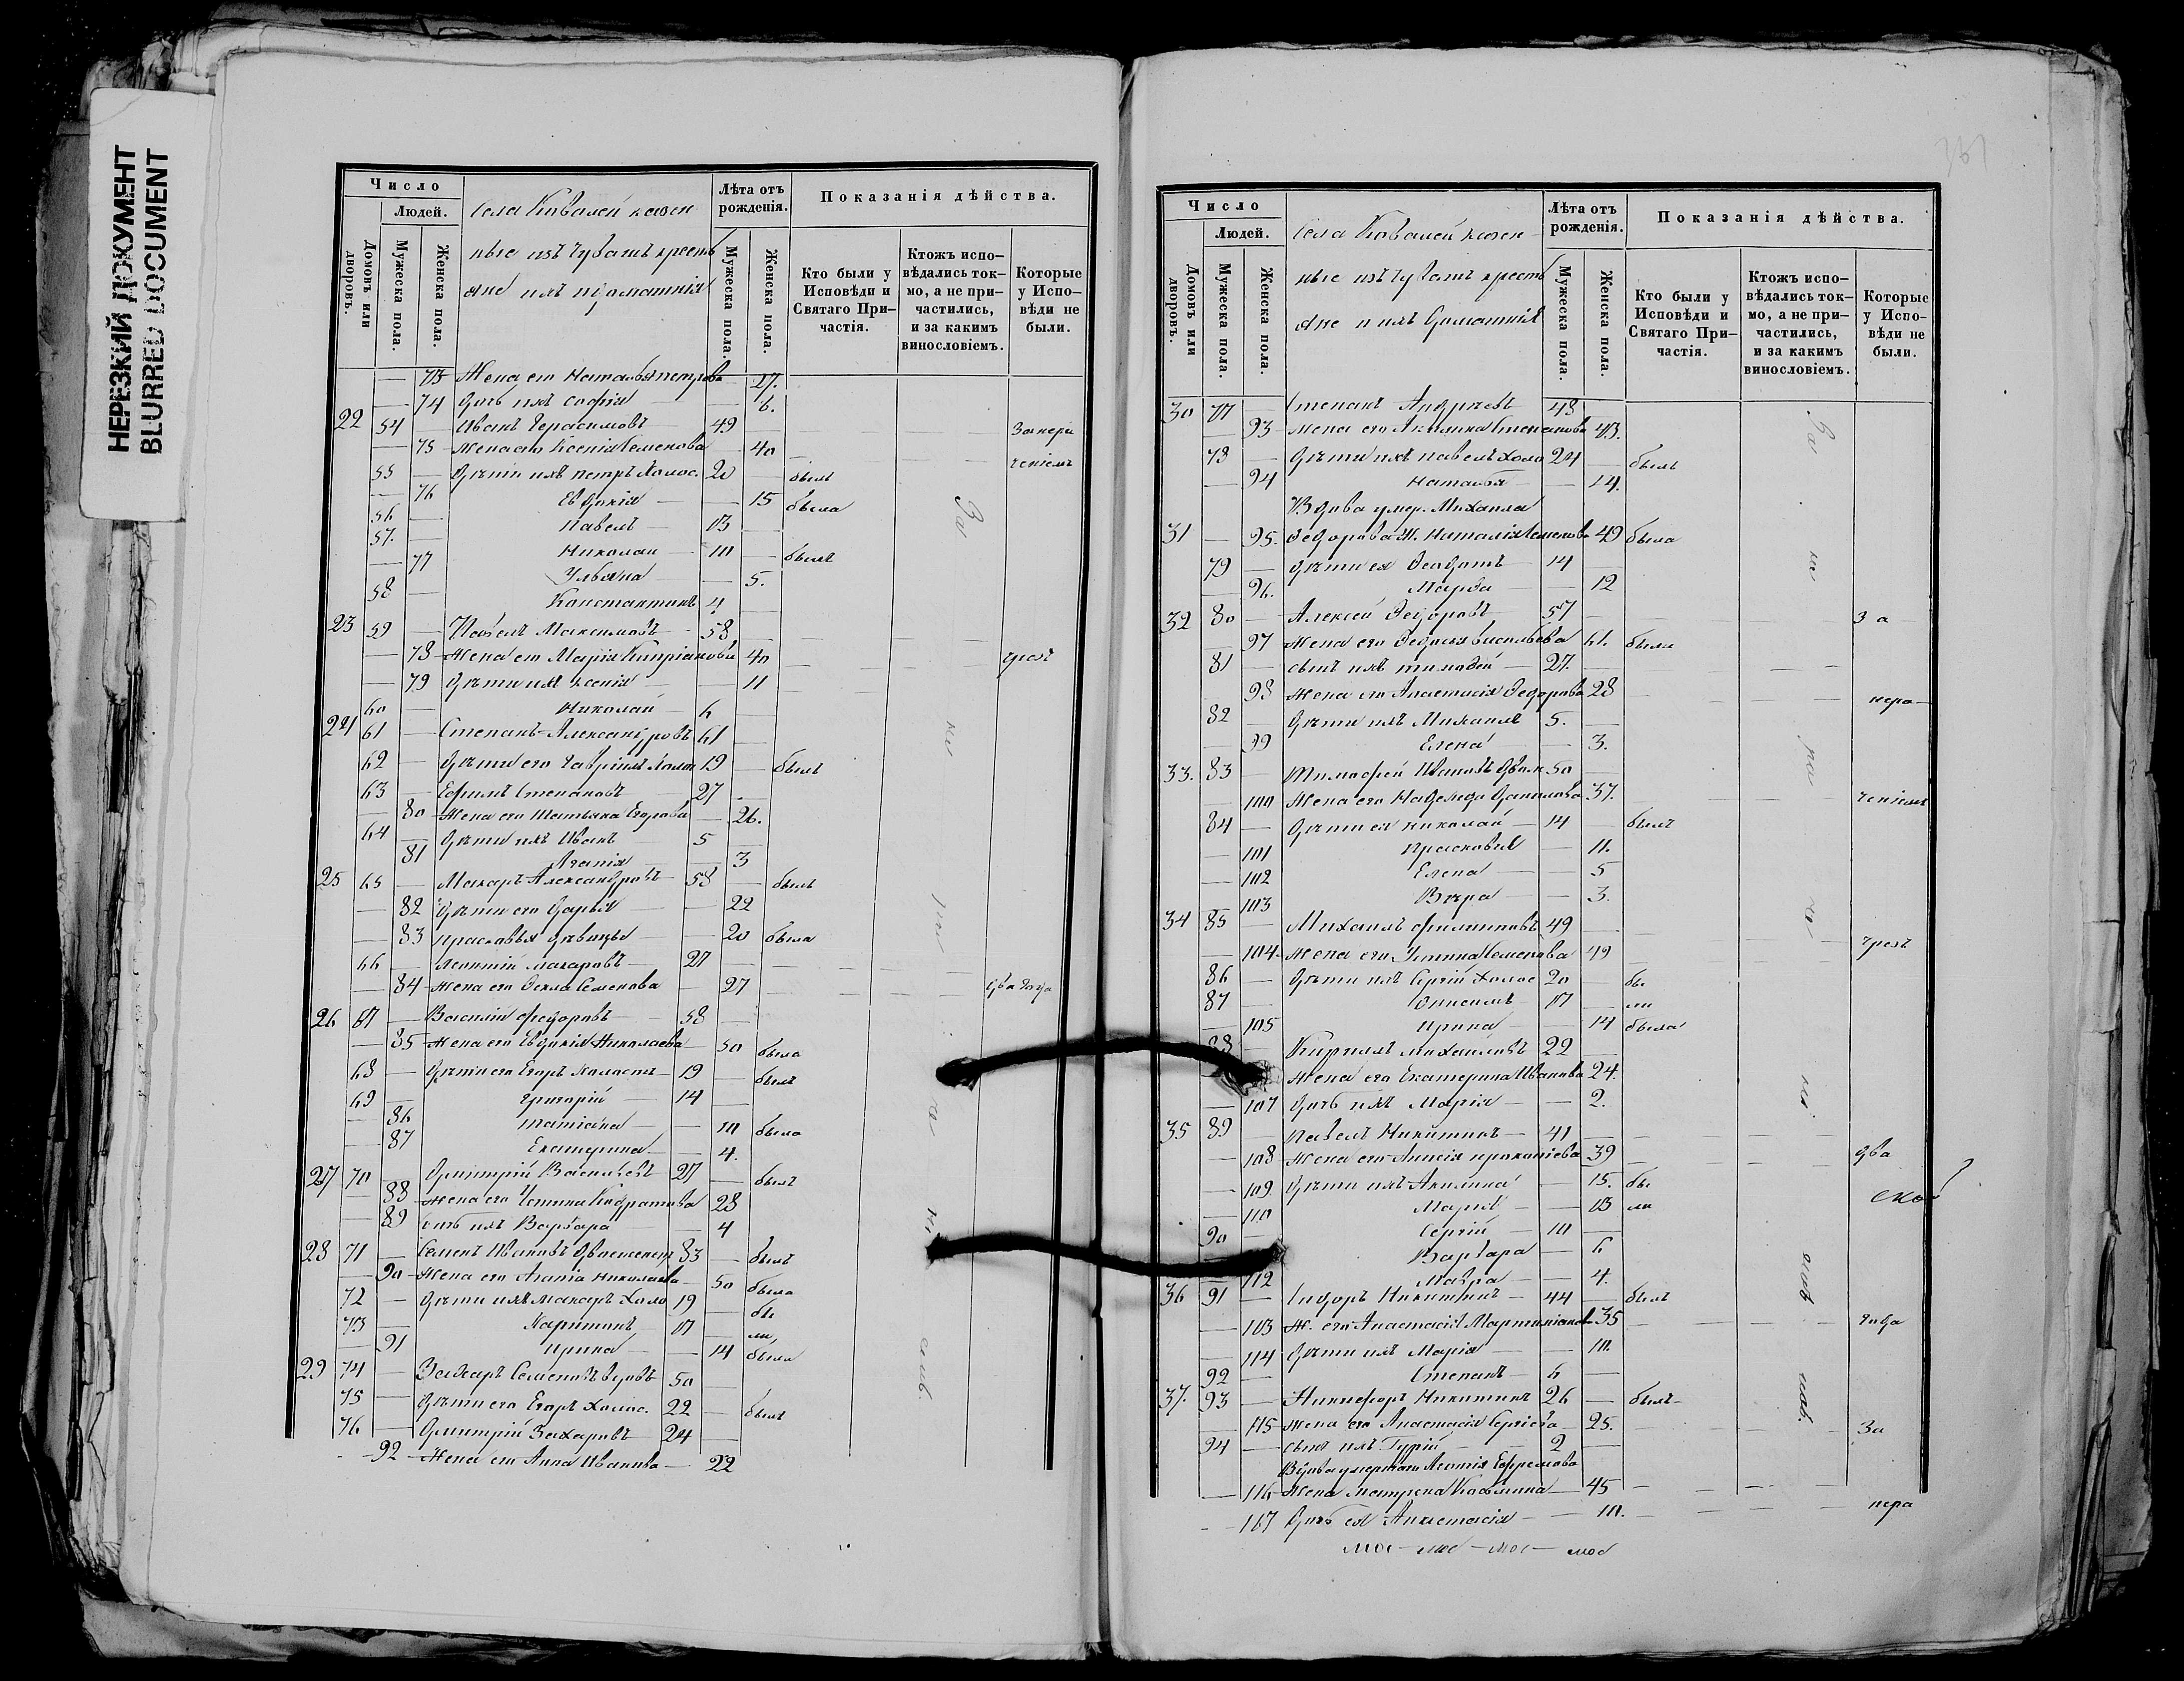 НЕРЕЗКИЙ ДОКУМЕНТ
BLURRED DOCUMENT
Число
Людей.
Домовъ или дворовъ.
Мужеска пола.
Женска пола.
Села Ковалей казен
ные изъ Чувашъ кресть
яне и ихъ домашнія
Лѣта отъ рожденія.
Мужеска пола.
Женска пола.
Показанія дѣйства.
Кто были у Исповѣди и Святаго При-
частія.
Ктожъ испо-
вѣдались ток-
мо, а не при-
частились,
и за какимъ
винословіемъ.
Которые
у Испо-
вѣди не
были.
— 73 Жена его Наталья Петрова — 27.
— 74 Дочь ихъ Софія — 6.
22 54 — Иванъ Герасимовъ 49 — За нера
— 75 Жена его Ксенія Семенова — 40 ченіемъ
55 — Дѣти ихъ Петръ Холос. 20 — былъ
— 76 Евдокія — 15 была
56 — Павелъ — 13
57. — Николай — 10 — былъ
— 77 Ульяна — 5.
58 — Константинъ 4
23 59 — Павелъ Максимовъ 58 —
— 78 Жена его Марія Кипріанова 40 чрезъ
— 79 Дѣти ихъ Ксенія — 11
60 — Николай — 6
24 61 — Степанъ Александровъ 61 —
62 — Дѣти его Гавріилъ Холос 19 — былъ
63 — Ефимъ Степановъ 27
— 80 Жена его Татьяна Егорова — 26.
64 — Дѣти ихъ Иванъ 5 —
— 81 Агапія — 3
25 65 — Макаръ Александровъ 58 — былъ
— 82 Дѣти его Дарья — 22
— 83 Прасковья дѣвицы — 20 была
66 — Леонтій Макаровъ 27
— 84 Жена его Фекла Семенова — 27 два года
26 67 — Василій Федоровъ 58 —
— 85 Жена его Евдокія Николаева 50 была
68 — Дѣти его Егоръ Холостъ 19 — былъ
69 — Григорій 14 —
— 86 Татіана — 10 была
— 87 Екатерина — 4.
27 70 — Дмитрій Васильевъ 27 — былъ
— 88 Жена его Устина Кодратова 28
— 89 Дочь ихъ Варвара — 4
28 71 — Семенъ Ивановъ 83 — былъ
— 90 Жена его Агапія Николаева 50 была
72 — Дѣти ихъ Макаръ Холо 19 — бы
73 — Харитонъ 17 — ли,
— 91 Ирина — 14 была
29 74 — Захаръ Семеновъ вдовъ 50 —
75 — Дѣти его Егоръ Холос. 22 — былъ
76 — Дмитрій Захаровъ 24 —
— 92 Жена его Анна Иванова — 22
Число
Людей.
Домовъ или дворовъ.
Мужеска пола.
Женска пола.
Села Ковалей казен
ные изъ Чувашъ кресть
яне и ихъ домашнія
Лѣта отъ рожденія.
Мужеска пола.
Женска пола.
Показанія дѣйства.
Кто были у Исповѣди и Святаго При-
частія.
Ктожъ испо-
вѣдались ток-
мо, а не при-
частились,
и за какимъ
винословіемъ.
Которые
у Испо-
вѣди не
были.
30 77 — Степанъ Андреевъ 48
— 93 Жена его Акилина Степанова 43.
78 — Дѣти ихъ Павелъ Холо 24 — былъ
— 94 Наталья — 14.
Вдова умер. Михаила
31 — 95. Федорова Ж. Наталія Семенова 49 была
79 — Дѣти ея Феодотъ 14 —
— 96. Марфа — 12
32 80 — Алексѣй Федоровъ 57 — За
— 97 Жена его Федосья Васильева 61. была
81 — Сынъ ихъ Тимофей 27.
— 98 Жена его Анастасія Федорова 28 нера
82 — Дѣти ихъ Михаилъ 5. —
— 99 Елена — 3.
33. 83 — Тимофей Ивановъ 50
— 100 Жена его Надежда Данилова 37. ченіемъ
84 — Дѣти ея Николай 14 — былъ
— 101 Прасковья — 11.
— 102 Елена — 5
— 103 Вѣра — 3.
34 85 — Михаилъ Филиповъ 49
— 104 Жена его Устина Семенова 49 чрезъ
86 — Дѣти ихъ Сергій Холос 20 — бы
87 — Онисимъ 17 — ли
— 105 Ирина — 14 была
88 — Кирилъ Михаиловъ 22 —
Жена его Екатерина Иванова 24.
— 107 Дочь ихъ Марія — 2.
35 89 — Павелъ Никитинъ 41
— 108 Жена его Анисія Прокопіева 39 два
— 109 Дѣти ихъ Акилина — 15. бы
— 110 Марія — 13 ли
90 — Сергій — 10 —
Варвара — 6
— 112 Мавра — 4.
36 91 — Сидоръ Никитинъ 44 — былъ
— 103 Ж. его Анастасія 35 года
— 114 Дѣти ихъ Марія — 10.
92 — Степанъ 6 —
37. 93 — Никифоръ Никитинъ 26 — былъ
— 115 Жена его Анастасія Сергіева 25. За
94 — Сынъ ихъ Гурій 2 —
Вдова умершаго Леонтія Ефремова
— 116 Жена Матрена 45
— 117 Дочь ея Анастасія — 10. нера